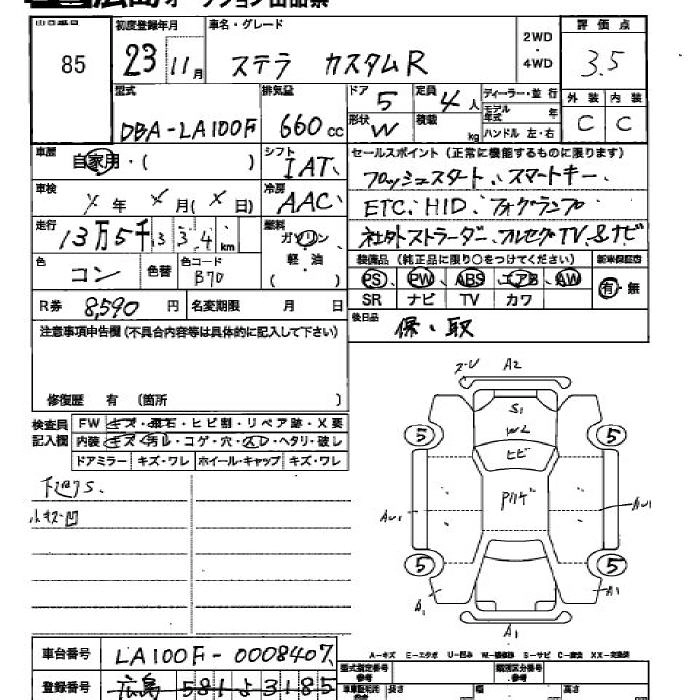 広島オークション出品票
出品番号 初度登録年月 車名・グレード 2WD・4WD 評価点
85 23年11月 ステラ カスタムR 3.5
型式 排気量 ドア 5 定員 4人 ディーラー・並行 外装 内装
DBA-LA100F 660cc 形状 W 積載 kg モデル年式 年 C C
ハンドル 左・右
車歴 自家用・( ) シフト IAT セールスポイント(正常に機能するものに限ります)
プッシュスタート、スマートキー、
車検 年 月( 日) 冷房 AAC ETC、HID、フォグランプ
走行 13万5千 3 3 4 km 燃料 ガソリン・軽・油 ( ) 社外ストラーダー、フルセグTV、&ナビ
色 コン 色替 色コード B70 装備品(純正品に限り○をつけてください) 新車保証書
PS PW ABS エアB AW 有・無
R券 8,590円 名変期限 月 日 SR ナビ TV カワ
注意事項申告欄(不具合内容等は具体的に記入して下さい) 後日品 保、取
修復歴 有 (箇所 )
検査員記入欄 FW キズ・飛石・ヒビ割・リペア跡・X要
内装 キズ・汚レ・コゲ・穴・スレ・ヘタリ・破レ
ドアミラー キズ・ワレ ホイール・キャップ キズ・ワレ
小キズ凹
A2
S1
W2
ヒビ
5 5
5 5
A1 A1
A1
車台番号 LA100F-0008407
A-キズ E-エクボ U-凹み W-補修跡 S-サビ C-腐食 XX-交換済
登録番号 広島 581 よ 3185
型式指定番号 参考 類別区分番号 参考
長さ 幅 高さ